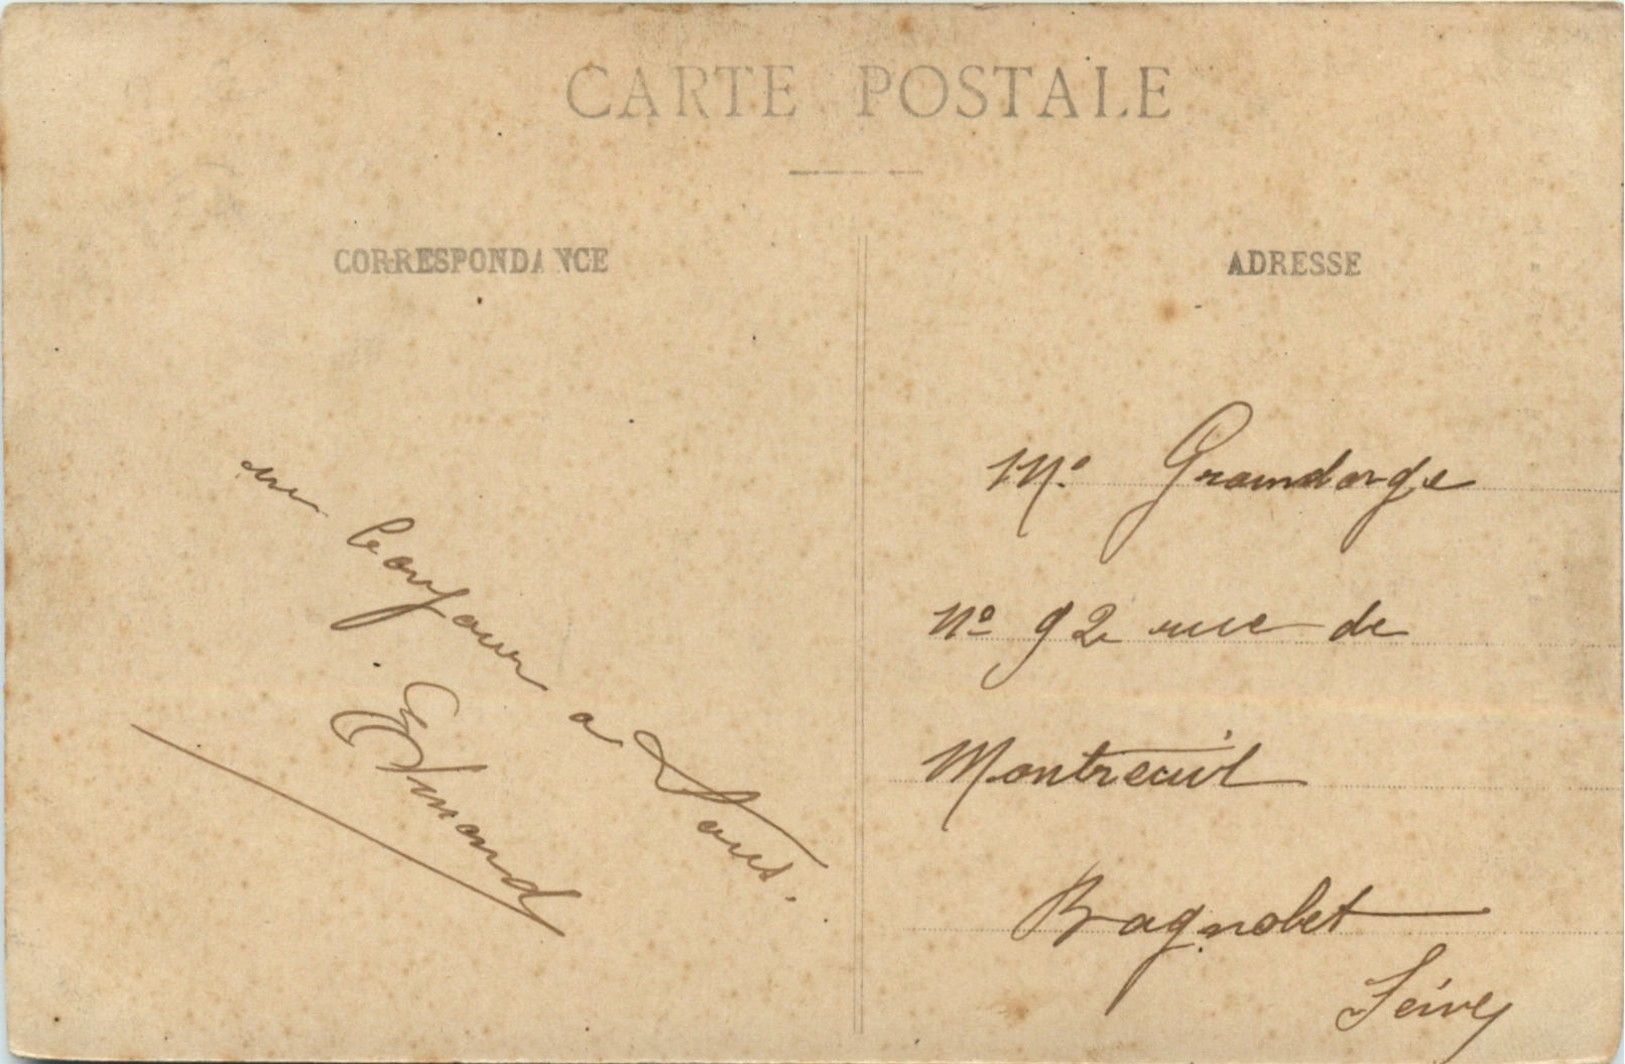 CARTE POSTALE
CORRESPONDANCE
un bonjour a tous.
Edmond
ADRESSE
Mr. Graindorge
No 92 rue de
Montreuil
Bagnolet
Seine